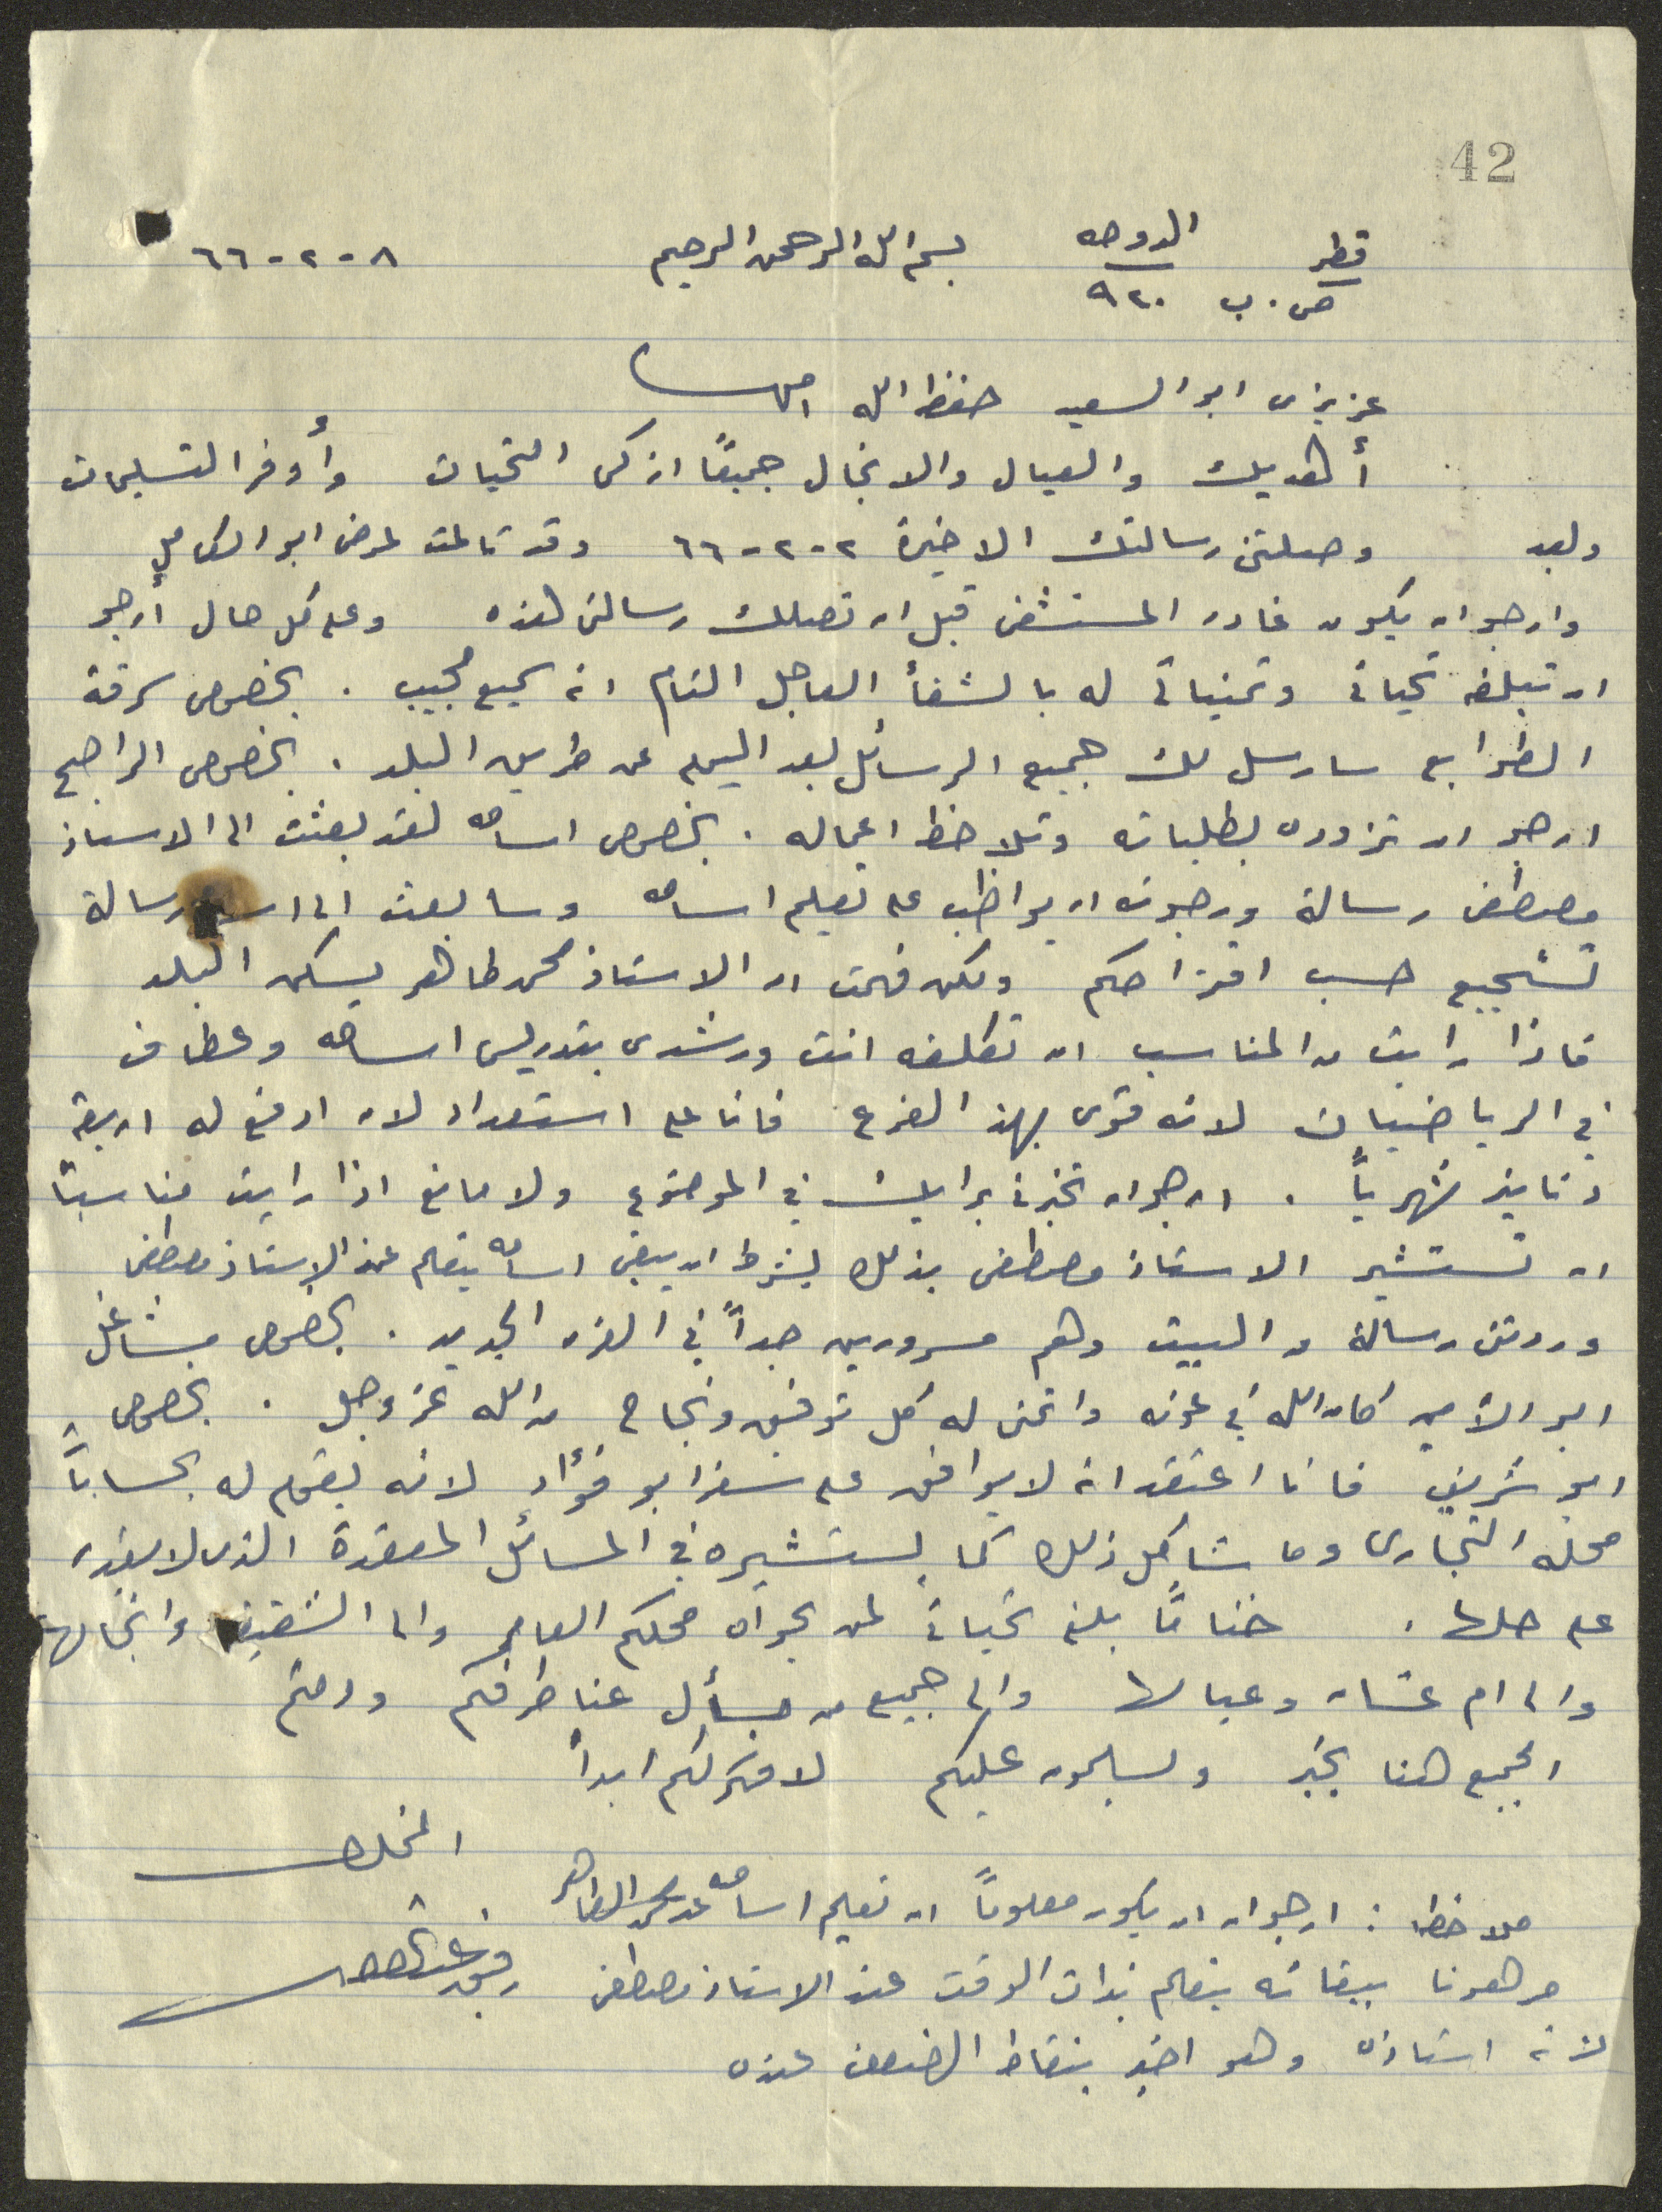 42
قطر الدوحه بسم الله الرحمن الرحيم ٨-٢-٦٦
ص.ب ٩٢٠
عزيزي ابو السعيد حفظه الله
أهديك والعيال والانجال جميعًا ازكى التحيات وأوفر التسليمات
وبعد وصلتني رسالتك الاخيرة ٢-٢-٦٦ وقد تألمت لمرض ابو الكامل
وارجو ان يكون غادر المستشفى قبل ان تصلك رسالتي هذه وعلى كل حال أرجو
ان تبلغه تحياتي وتمنياتي له بالشفأ العاجل التام انه سميع مجيب . بخصوص سرقة
الطوابع سارسل لك جميع الرسائل بعد اليوم عن طريق البلد . بخصوص الراجح
ارجو ان تزوده بطلباته وتلاحظ اعماله . بخصوص اسامه لقد بعثت الى الاستاذ
مصطفى رسالة ورجوته ان يواظب على تعليم اسامه وسابعث الى رسالة
تشجيع حسب اقتراحكم ولكن فهمت ان الاستاذ محمد طاهر يسكن البلد
فاذا رايت من المناسب ان تكلفه انت ورشدي بتدريس اسامه وعطاف
في الرياضيات لانه قوي بهذا الفرع فانا على استعداد لان ادفع له اربعة
دنانير شهرياً . ارجو ان تخبرني برايك في الموضوع ولا مانع اذا رايت مناسباً
ان تستشير الاستاذ مصطفى بذلك بشرط ان يبقى اسامه يتعلم عند الاستاذ مصطفى
وردتني رسالة من البيت وهم مسرورين جداً في الفرن الجديد . بخصوص مشاغل
ابو الأمين كان الله في عونه واتمنى له كل توفيق ونجاح من الله عز وجل . بخصوص
ابو شريف فانا اعتقد انه لا يوافق على سفر ابو فؤاد لانه يقوم له بحسابات
محله التجاري وما شاكل ذلك كما يستشيره في المسائل المعقدة الذي لا يقدر
على حلها . ختامًا بلغ تحياتي لمن يحواه محلكم العامر والى الشقيقه وانجالها
والى ام غسان وعيالها والى جميع من يسأل عنا طرفكم ودمتم
الجميع هنا بخير ويسلمون عليكم لا فكر لكم ابداً
المخلص
ملاحظه : ارجو ان ان يكون معلوماً ان تعليم اسامه عند محمد الطاهر
مرهونا ببقائه يتعلم بذات الوقت عند الاستاذ مصطفى
لأنه استاذه وهو اخبر بنقاط الضعف عنده